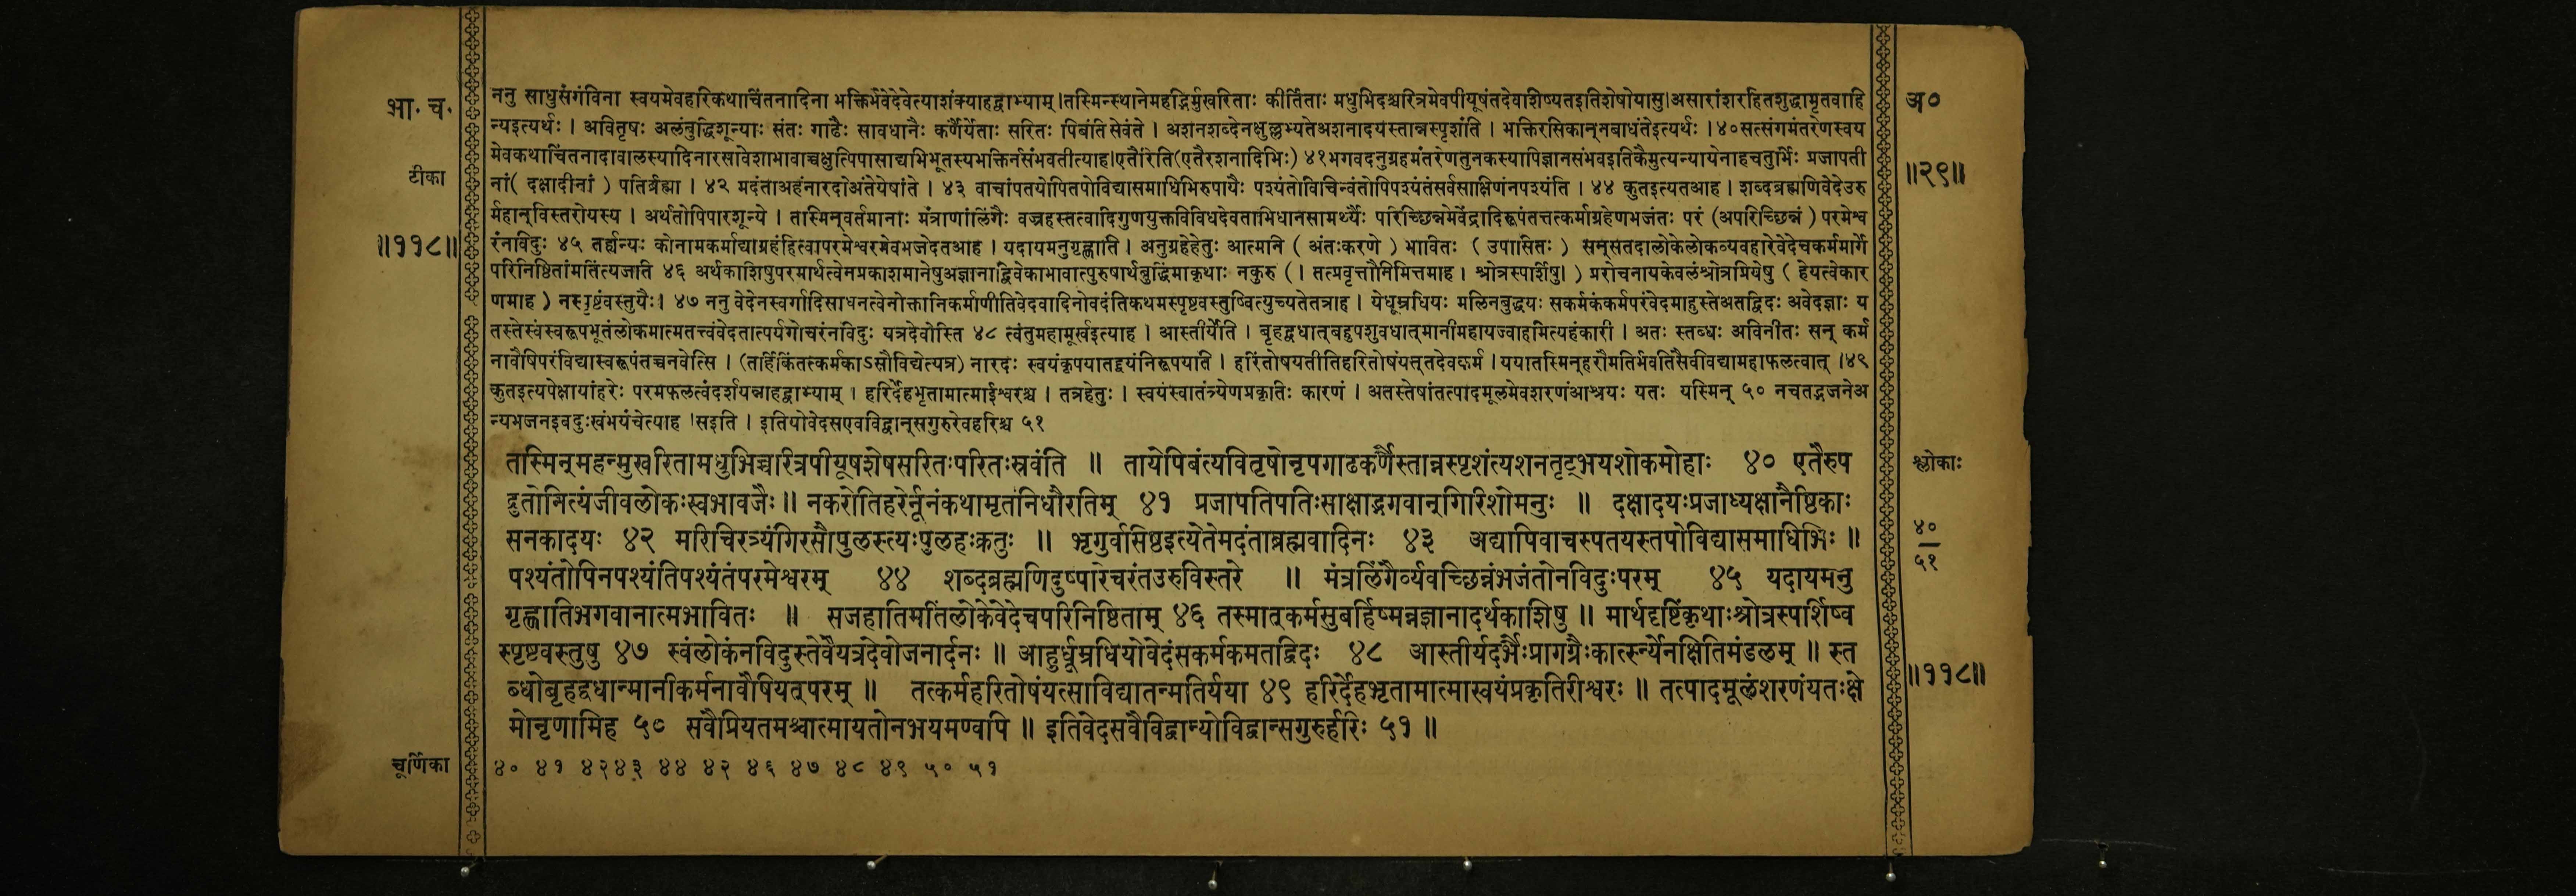 भा. च.
टीका
॥११८॥
ननु साधुसंगंविना स्वयमेवहरिकथाचिंतनादिना भक्तिर्भवेदेवेत्याशंक्याहद्वाभ्याम् ।तस्मिन्स्थानेमहद्भिर्मुखरिताः कीर्तिताः मधुभिदश्चरित्रमेवपीयूषंतदेवाशिष्यतइतिशेषोयासु।असारांशरहितशुद्धामृतवाहि
न्यइत्यर्थः । अवितृषः अलंबुद्धिशून्याः संतः गाढैः सावधानैः कर्णैर्येताः सरितः पिबंति सेवंते । अशनशब्देनक्षुल्लभ्यतेअशनादयस्तान्नस्पृशंति । भक्तिरसिकान्नबाधंतेइत्यर्थः । ४०सत्संगमंतरेणस्वय
मेवकथाचिंतनादावालस्यादिनारसावेशाभावाच्चक्षुत्पिपासाद्यभिभूतस्यभक्तिर्नसंभवतीत्याह।एतैरिति(एतैरशनादिभिः) ४१भगवदनुग्रहमंतरेणतुनकस्यापिज्ञानसंभवइतिकैमुत्यन्यायेनाहचतुर्भिः प्रजापती
नां( दक्षादीनां ) पतिर्ब्रह्मा । ४२ मदंताअहंनारदोअंतेयेषांते । ४३ वाचांपतयोपितपोविद्यासमाधिभिरुपायैः पश्यंतोविचिन्वंतोपिपश्यंतंसर्वसाक्षिणंनपश्यंति । ४४ कुतइत्यतआह । शब्दब्रह्मणिवेदेउरु
र्महान्विस्तरोयस्य । अर्थतोपिपारशून्ये । तस्मिन्वर्तमानाः मंत्राणांलिंगैः वज्रहस्तत्वादिगुणयुक्तविविधदेवताभिधानसामर्थ्यैः परिच्छिन्नमेवेंद्रादिरूपंतत्तत्कर्माग्रहेणभजंतः परं (अपरिच्छिन्नं ) परमेश्व
रंनविदुः ४५ तर्ह्यन्यः कोनामकर्माद्याग्रहंहित्वापरमेश्वरमेवभजेदतआह । यदायमनुगृह्णाति । अनुग्रहेहेतुः आत्मनि ( अंतःकरणे ) भावितः ( उपासितः ) सन्सतदालोकेलोकव्यवहारेवेदेचकर्ममार्गे
परिनिष्ठितांमतिंत्यजाति ४६ अर्थकाशिषुपरमार्थत्वेनप्रकाशमानेषुअज्ञानाद्विवेकाभावात्पुरुषार्थबुद्धिंमाकृथाः नकुरु (। तत्प्रवृत्तौनिमित्तमाह । श्रोत्रस्पर्शिषु। ) प्ररोचनायकेवलंश्रोत्रप्रियेषु ( हेयत्वेकार
णमाह ) नस्पृष्टंवस्तुयैः। ४७ ननु वेदेनस्वर्गादिसाधनत्वेनोक्तानिकर्माणीतिवेदवादिनोवदंतिकथमस्पृष्टवस्तुष्वित्युच्यतेतत्राह । येधूम्रधियः मलिनबुद्धयः सकर्मकंकर्मपरंवेदमाहुस्तेअतद्विदः अवेदज्ञाः य
तस्तेस्वंस्वरूपभूतंलोकमात्मतत्त्वंवेदतात्पर्यगोचरंनविदुः यत्रदेवोस्ति ४८ त्वंतुमहामूर्खइत्याह । आस्तीर्येति । बृहद्वधात्बहुपशुवधात्मानीमहायज्वाहमित्यहंकारी । अतः स्तब्धः अविनीतः सन् कर्म
नावैषिपरंविद्यास्वरूपंतच्चनवेत्सि । (तर्हिकिंतत्कर्मकाऽसौविद्येत्यत्र) नारदः स्वयंकृपयातद्द्वयंनिरूपयाति । हरिंतोषयतीतिहरितोषंयत्तदेवकर्म । ययातस्मिन्हरौमतिर्भवतिसैवविद्यामहाफलत्वात् ।४९
कुतइत्यपेक्षायांहरेः परमफलत्वंदर्शयन्नाहद्वाभ्याम् । हरिर्देहभृतामात्माईश्वरश्च । तत्रहेतुः । स्वयंस्वातंत्र्येणप्रकृतिः कारणं । अतस्तेषांतत्पादमूलमेवशरणंआश्रयः यतः यस्मिन् ५० नचतद्भजनेअ
न्यभजनइवदुःखंभयंचेत्याह ।सइति । इतियोवेदसएवविद्वान्सगुरुरेवहरिश्च ५१
तस्मिन्महन्मुखरितामधुभिच्चरित्रपीयूषशेषसरितःपरितःस्रवंति ॥ तायेपिबंत्यवितृषोनृपगाढकर्णैस्तान्नस्पृशंत्यशनतृट्भयशोकमोहाः ४० एतैरुप
द्रुतोनित्यंजीवलोकःस्वभावजैः ॥ नकरोतिहरेर्नूनंकथामृतनिधौरतिम् ४१ प्रजापतिपतिःसाक्षाद्भगवान्गिरिशोमनुः ॥ दक्षादयःप्रजाध्यक्षानैष्ठिकाः
सनकादयः ४२ मरिचिरत्र्यंगिरसौपुलस्त्यःपुलहःक्रतुः ॥ भृगुर्वसिष्ठइत्येतेमदंताब्रह्मवादिनः ४३ अद्यापिवाचस्पतयस्तपोविद्यासमाधिभिः ॥
पश्यंतोपिनपश्यंतिपश्यंतंपरमेश्वरम् ४४ शब्दब्रह्मणिदुष्पारेचरंतउरुविस्तरे ॥ मंत्रलिंगैर्व्यवच्छिन्नंभजंतोनविदुःपरम् ४५ यदायमनु
गृह्णातिभगवानात्मभावितः ॥ सजहातिमतिंलोकेवेदेचपरिनिष्ठिताम् ४६ तस्मात्कर्मसुबर्हिष्मन्नज्ञानादर्थकाशिषु ॥ मार्थदृष्टिंकृथाःश्रोत्रस्पर्शिष्व
स्पृष्टवस्तुषु ४७ स्वंलोकंनविदुस्तेवैयत्रदेवोजनार्दनः ॥ आहुर्धूम्रधियोवेदंसकर्मकमतद्विदः ४८ आस्तीर्यदर्भैःप्रागग्रैःकात्स्न्येनक्षितिमंडलम् ॥ स्त
ब्धोबृहद्वधान्मानीकर्मनावैषियत्परम् ॥ तत्कर्महरितोषंयत्साविद्यातन्मतिर्यया ४९ हरिर्देहभृतामात्मास्वयंप्रकृतिरीश्वरः ॥ तत्पादमूलंशरणंयतःक्षे
मोनृणामिह ५० सवैप्रियतमश्चात्मायतोनभयमण्वपि ॥ इतिवेदसवैविद्वान्योविद्वान्सगुरुर्हरिः ५१ ॥
चूर्णिका
४० ४१ ४२४३ ४४ ४२ ४६ ४७ ४८ ४९ ५० ५१
अ०
॥२९॥
श्लोकाः
४०
५१
॥११८॥